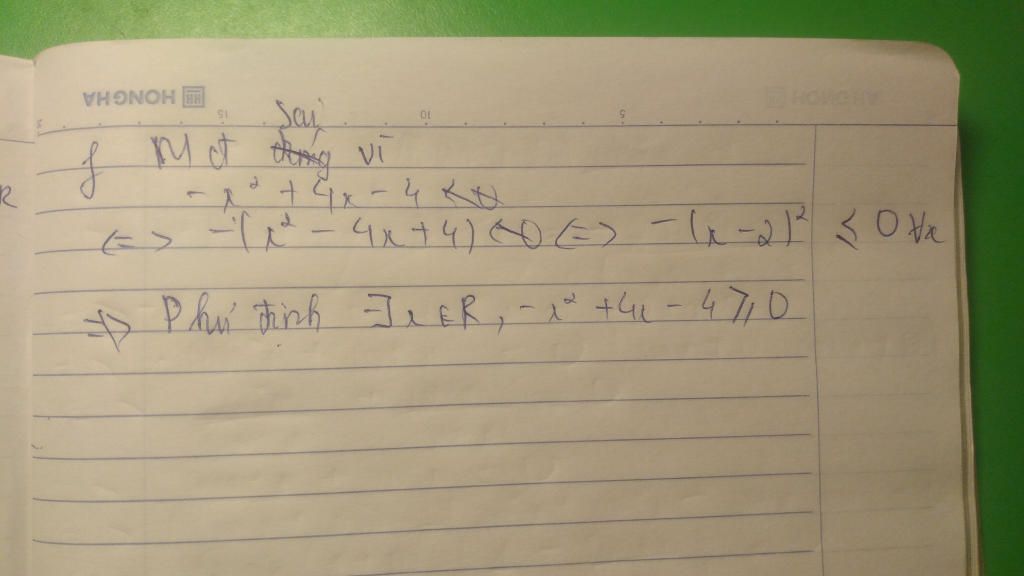 HONG HA
15 10 5
sai
f Mđ đúng vì
-x² + 4x - 4 < 0
<=> -(x² - 4x + 4) < 0 <=> -(x-2)² ≤ 0 ∀x
=> Phủ định ∃x∈R, -x² + 4x - 4 ≥ 0